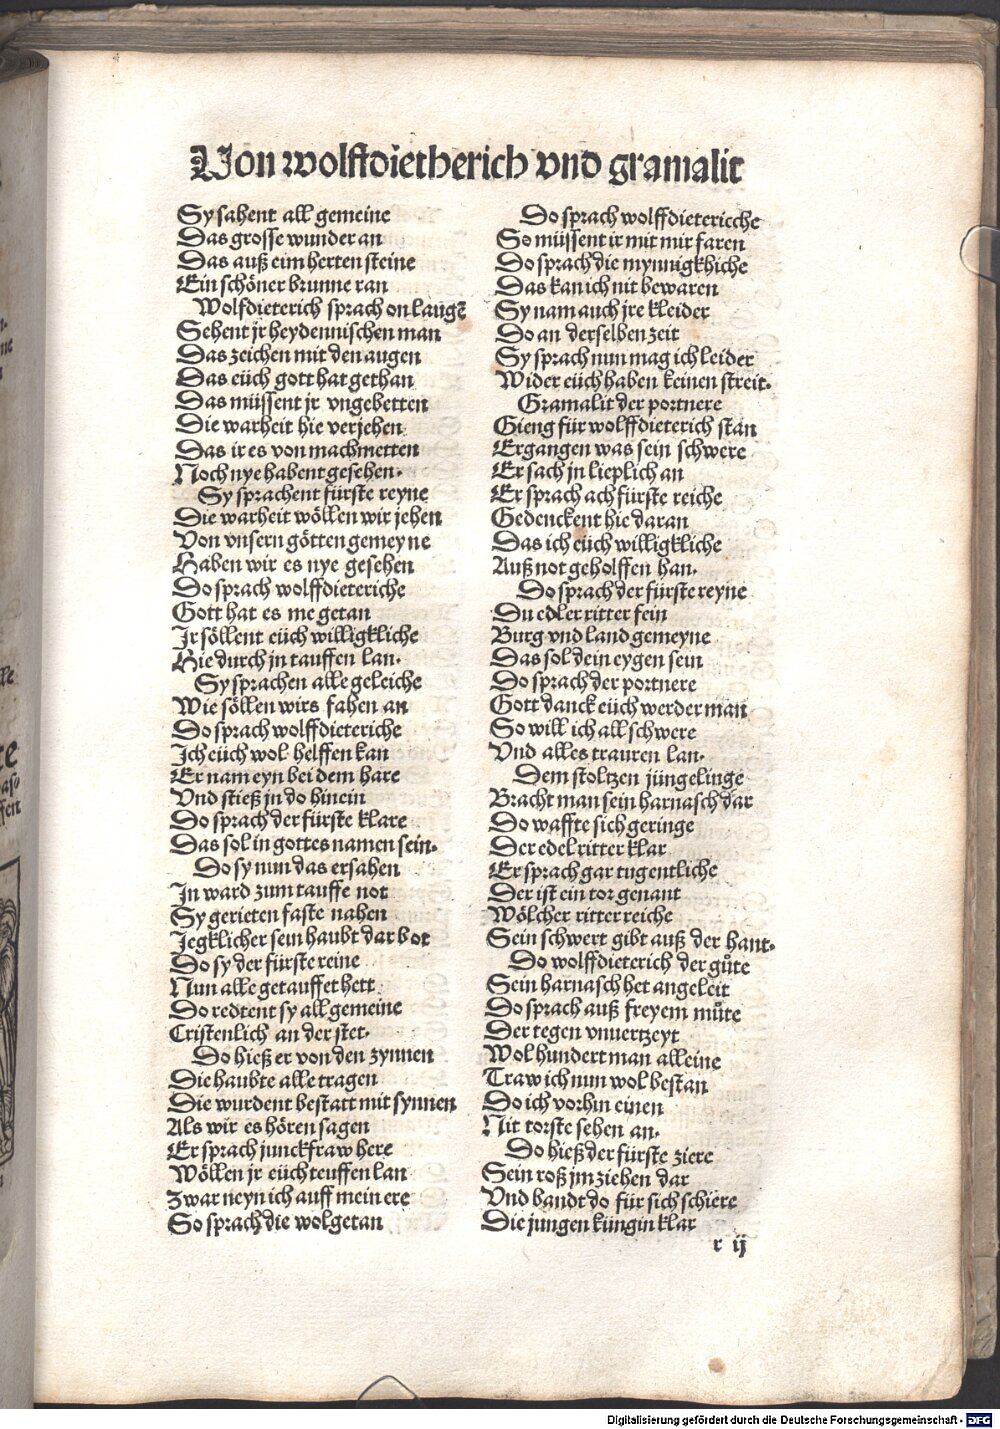 Von wolffdietherich vnd gramalit
Sy sahent all gemeine
Das grosse wunder an
Das auß eim herten steine
Ein schöner brunne ran
Wolfdieterich sprach on laugẽ
Sehent jr heydennischen man
Das zeichen mit den augen
Das eüch gott hat gethan
Das müssent jr vngebetten
Die warheit hie verjehen
Das ir es von machmetten
Noch nye habent gesehen.
Sy sprachent fürste reyne
Die warheit wöllen wir jehen
Von vnsern götten gemeyne
Haben wir es nye gesehen
Do sprach wolffdieteriche
Gott hat es me getan
Ir söllent eüch willigkliche
Hie durch jn tauffen lan.
Sy sprachen alle geleiche
Wie söllen wirs fahen an
Do sprach wolffdieteriche
Ich eüch wol helffen kan
Er nam eyn bei dem hare
Vnd stieß jn do hinein
Do sprach der fürste klare
Das sol in gottes namen sein.
Do sy nun das ersahen
In ward zum tauffe not
Sy gerieten faste nahen
Jegklicher sein haubt dar bot
Do sy der fürste reine
Nun alle getauffet hett
Do redtent sy all gemeine
Cristenlich an der stet.
Do hieß er von den zynnen
Die haubte alle tragen
Die wurdent bestatt mit synnen
Als wir es hören sagen
Er sprach junckfraw here
Wöllen jr eüch teuffen lan
Zwar neyn ich auff mein ere
So sprach die wolgetan
Do sprach wolffdietericche
So müssent ir mit mir faren
Do sprach die mynnigkhiche
Das kan ich nit bewaren
Sy nam auch jre kleider
Do an derselben zeit
Sy sprach nun mag ich leider
Wider eüch haben keinen streit.
Gramalit der portnere
Gieng für wolffdieterich stan
Ergangen was sein schwere
Er sach jn lieplich an
Er sprach ach fürste reiche
Gedenckent hie daran
Das ich eüch willigkliche
Auß not geholffen han.
Do sprach der fürste reyne
Du edler ritter fein
Burg vnd land gemeyne
Das sol dein eygen sein
Do sprach der portnere
Gott danck eüch werder man
So will ich all schwere
Vnd alles trauren lan.
Dem stoltzen jüngelinge
Bracht man sein harnasch dar
Do waffte sich geringe
Der edel ritter klar
Er sprach gar tugentliche
Der ist ein tor genant
Wölcher ritter reiche
Sein schwert gibt auß der hant.
Do wolffdieterich der gůte
Sein harnasch het angeleit
Do sprach auß freyem můte
Der tegen vnuertzeyt
Wol hundert man alleine
Traw ich nun wol bestan
Do ich vorhin einen
Nit torste sehen an.
Do hieß der fürste ziere
Sein roß jm ziehen dar
Vnd bandt do für sich schiere
Die jungen küngin klar
r ij
Digitalisierung gefördert durch die Deutsche Forschungsgemeinschaft - DFG